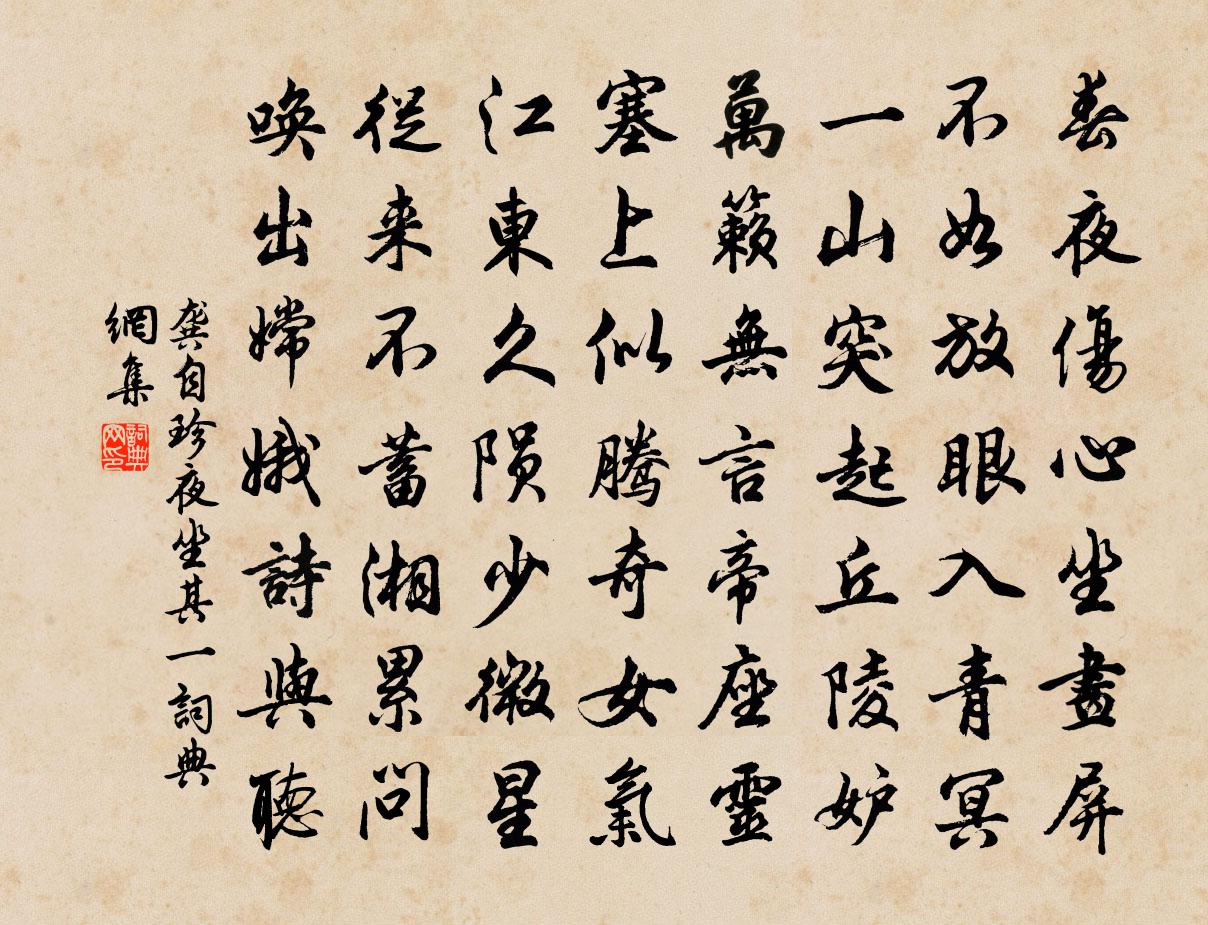 春夜傷心坐畫屏
不如放眼入青冥
一山突起丘陵妒
萬籟無言帝座靈
塞上似騰奇女氣
江東久隕少微星
從来不蓄湘累問
喚出嫦娥詩與聽
龔自珍夜坐其一詞典
網集
詞典
网印